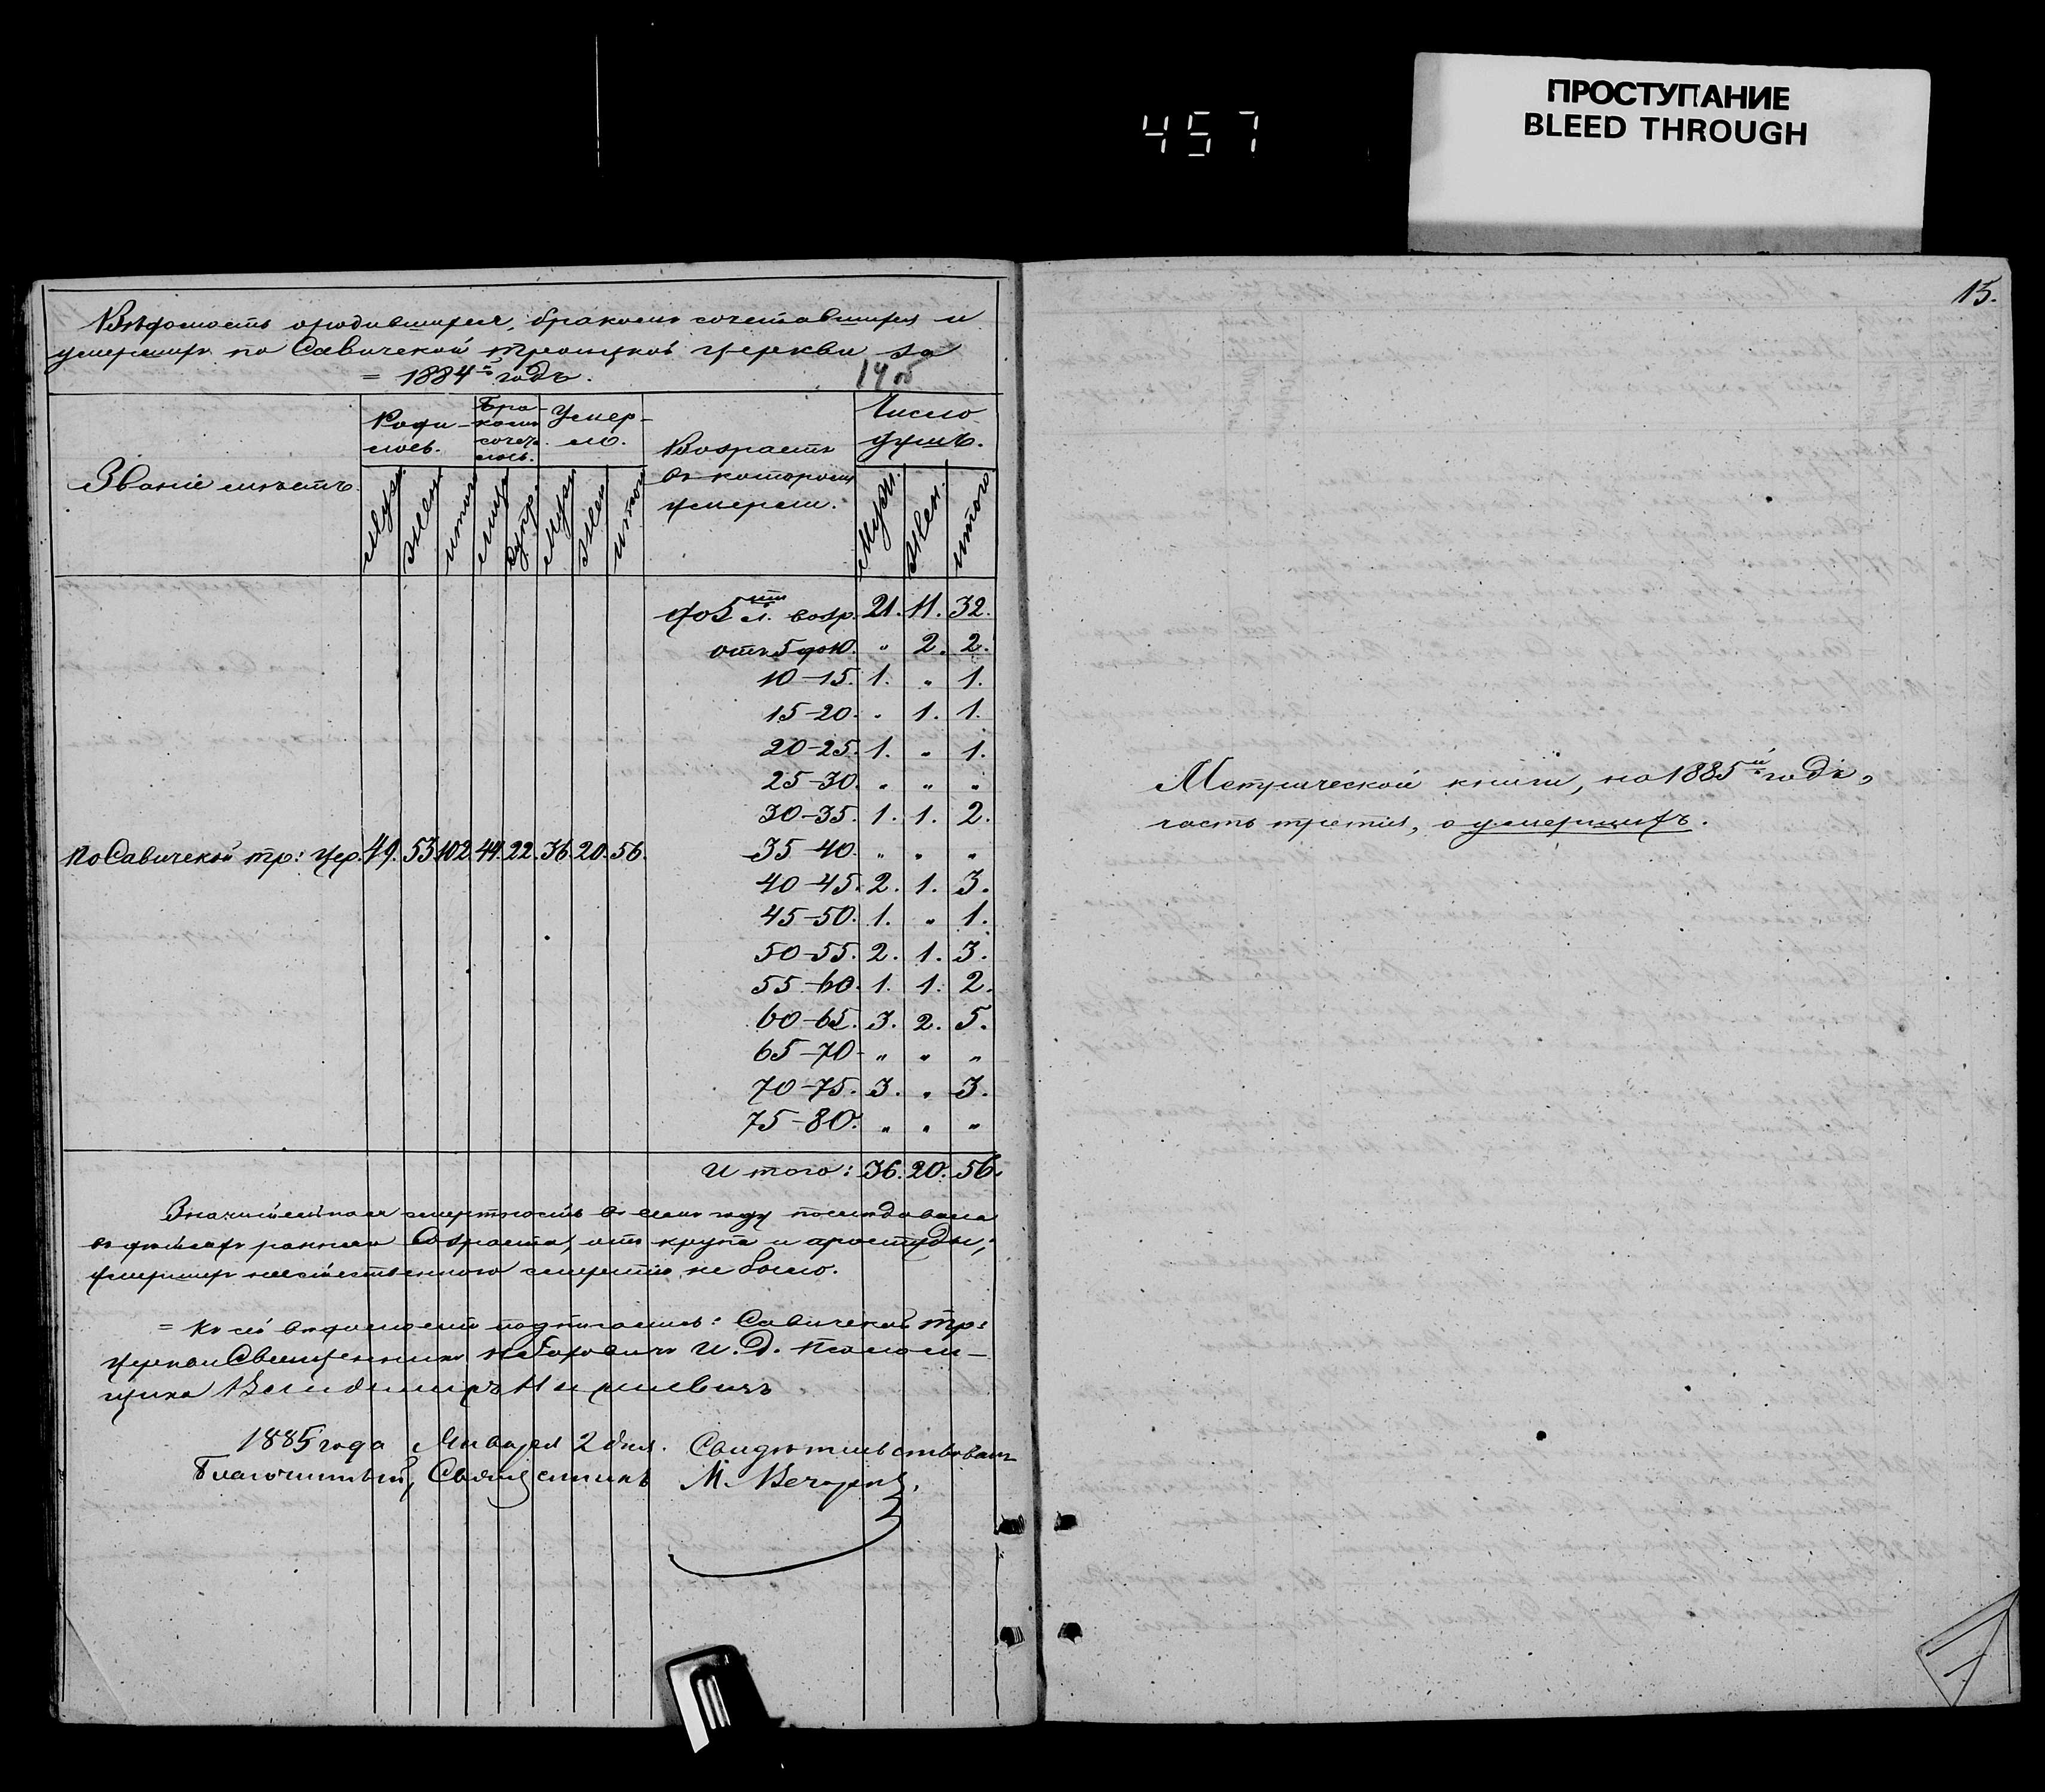 457
ПРОСТУПАНИЕ
BLEED THROUGH
Вѣдомость о родившихся, бракомъ сочетавшихся и
умершихъ по Савичской Троицкой церкви за
= 1884й годъ.
14 об
Званіе мѣстъ.
Роди-
лось.
Бра-
комъ
сочета-
лось.
Умер-
ло.
Возрастъ
въ которомъ
умерли.
Число
душъ.
Муж. Жен. итого Лицъ Супр. Муж. Жен. итого Муж. Жен. итого
До 5 ти л. возр. 21. 11. 32.
отъ 5 до 10. " 2. 2.
10-15. 1. " 1.
15-20. " 1. 1.
20-25. 1. " 1.
25-30. " " "
30-35. 1. 1. 2.
По Савичской тр: цер. 49. 53. 102. 44. 22. 36. 20. 56.
35-40. " " "
40-45. 2. 1. 3.
45-50. 1. " 1.
50-55. 2. 1. 3.
55-60. 1. 1. 2.
60-65. 3. 2. 5.
65-70. " " "
70-75. 3. " 3.
75-80. " " "
Итого: 36. 20. 56.
Значительная смертность въ семъ году послѣдовала
въ дѣтяхъ ранняго возраста, отъ крупа и простуды,
умершихъ неестественною смертію не было.
= Къ сей вѣдомости подписались: Савичской тр:
церкви Священникъ И. Д. Псалом-
щика Владиміръ
1885 года Января 2 дня. Свидѣтельствовалъ
Благочинный, Священникъ М.
15.
Метрической книги, на 1885й годъ,
часть третія, о умершихъ.